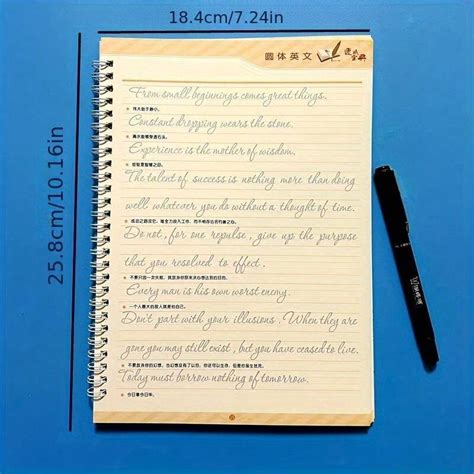 18.4cm/7.24in
25.8cm/10.16in
圆体英文
From small beginnings comes great things.
伟大始于渺小。
Constant dropping wears the stone.
滴水能穿透石头。
Experience is the mother of wisdom.
经验是智慧之母。
The talent of success is nothing more than doing
well whatever you do without a thought of time.
Do not, for one repulse, give up the purpose
that you resolved to effect.
不要只因一次失败，就放弃你原来决心想达到的目的。
Every man is his own worst enemy.
一个人最大的敌人就是他自己。
Don't part with your illusions. When they are
gone you may still exist, but you have ceased to live.
Today must borrow nothing of tomorrow.
今日事今日毕。